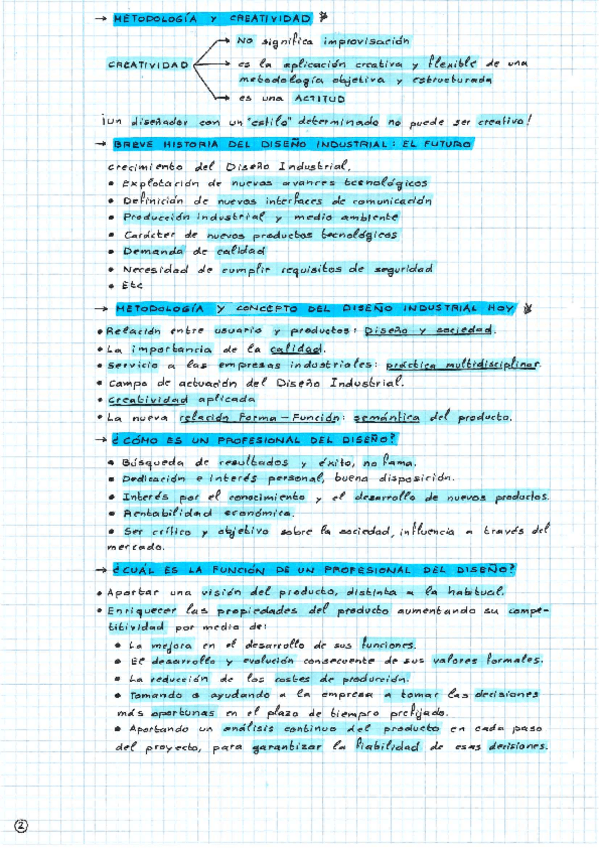 → METODOLOGÍA y CREATIVIDAD
→ No significa improvisación
CREATIVIDAD → es la aplicación creativa y flexible de una
metodología objetiva y estructurada
→ es una ACTITUD
¡un diseñador con un "estilo" determinado no puede ser creativo!
→ BREVE HISTORIA DEL DISEÑO INDUSTRIAL: EL FUTURO
crecimiento del Diseño Industrial.
• Explotación de nuevos avances tecnológicos
• Definición de nuevos interfaces de comunicación
• Producción industrial y medio ambiente
• Carácter de nuevos productos tecnológicos
• Demanda de calidad
• Necesidad de cumplir requisitos de seguridad
• Etc
→ METODOLOGÍA y CONCEPTO DEL DISEÑO INDUSTRIAL HOY
• Relación entre usuario y productos: Diseño y sociedad.
• La importancia de la calidad.
• Servicio a las empresas industriales: práctica multidisciplinar.
• Campo de actuación del Diseño Industrial.
• Creatividad aplicada
• La nueva relación Forma - Función: semántica del producto.
→ ¿CÓMO ES UN PROFESIONAL DEL DISEÑO?
• Búsqueda de resultados y éxito, no fama.
• Dedicación e interés personal, buena disposición.
• Interés por el conocimiento y el desarrollo de nuevos productos.
• Rentabilidad económica.
• Ser crítico y objetivo sobre la sociedad, influencia a través del
mercado.
→ ¿CUÁL ES LA FUNCIÓN DE UN PROFESIONAL DEL DISEÑO?
• Aportar una visión del producto, distinta a la habitual.
• Enriquecer las propiedades del producto aumentando su compe-
titividad por medio de:
• La mejora en el desarrollo de sus funciones.
• El desarrollo y evolución consecuente de sus valores formales.
• La reducción de los costes de producción.
• Tomando o ayudando a la empresa a tomar las decisiones
más oportunas en el plazo de tiempro prefijado.
• Aportando un análisis continuo del producto en cada paso
del proyecto, para garantizar la fiabilidad de esas decisiones.
2